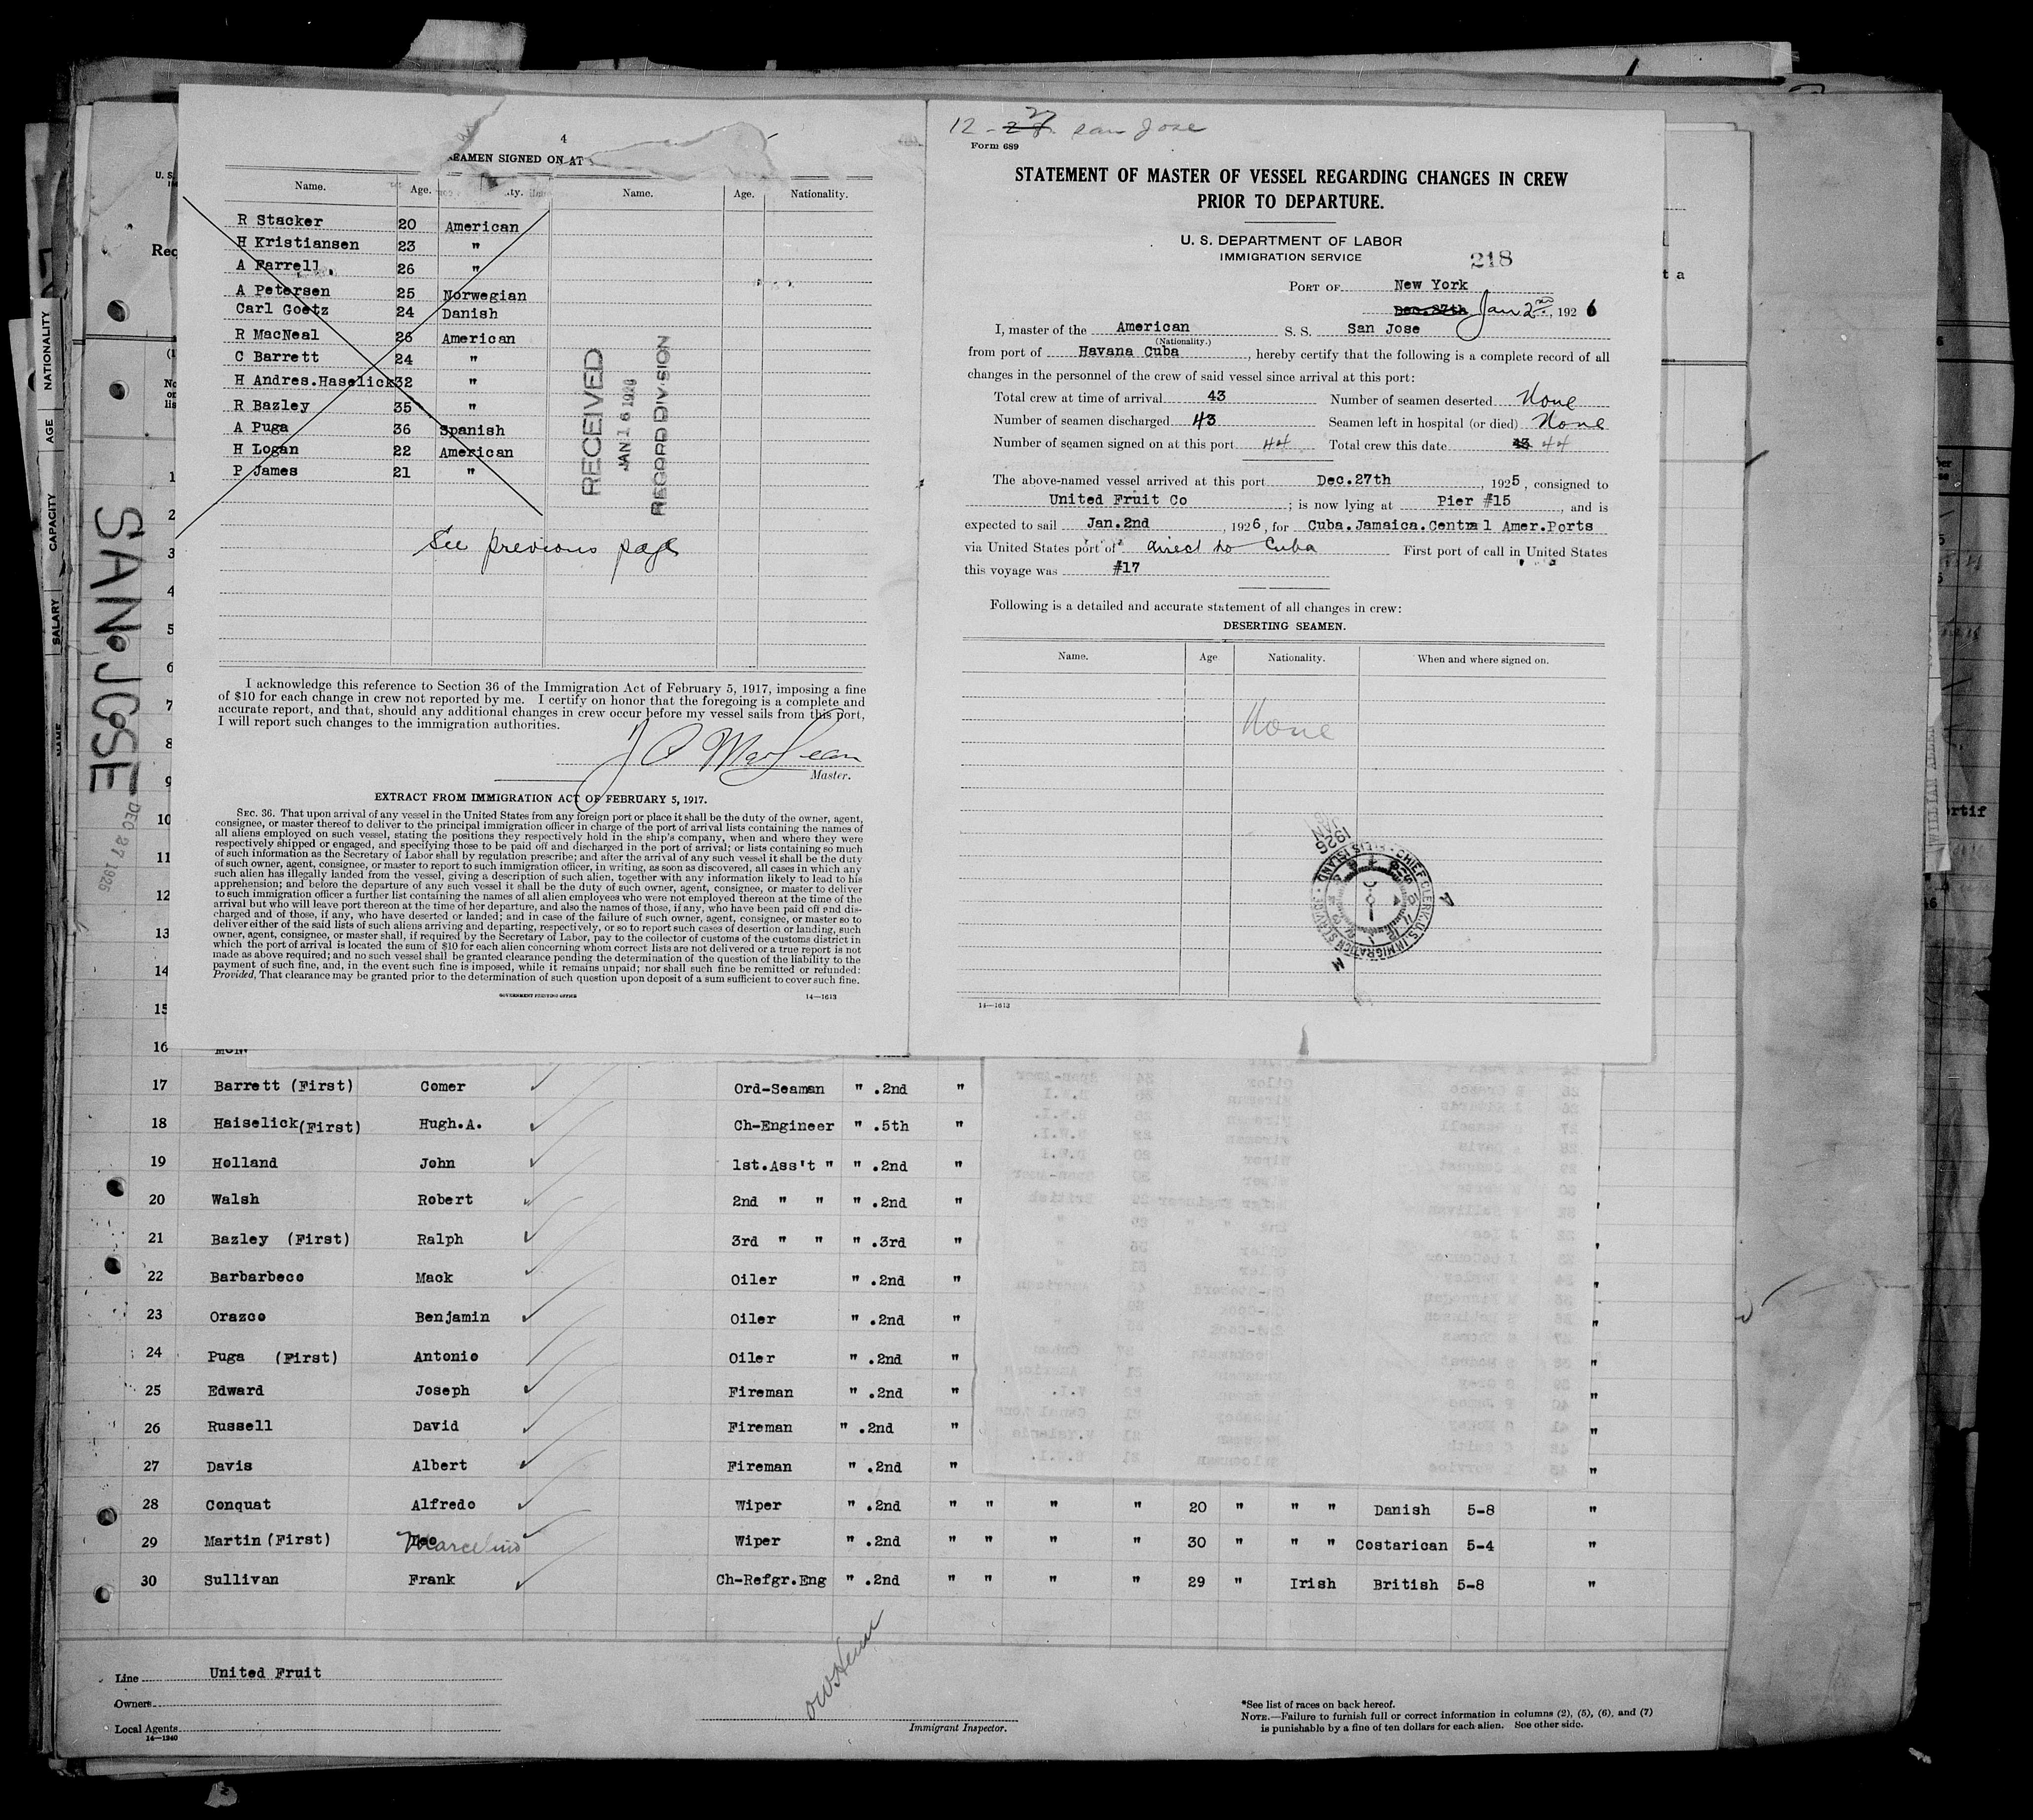 4
SEAMEN SIGNED ON AT
Name. Age. Name. Age. Nationality.
R Stacker 20 American
H Kristiansen 23 "
A Farrell 26 "
A Petersen 25 Norwegian
Carl Goetz 24 Danish
R MacNeal 26 American
C Barrett 24 "
H Andres.Haselick 32 "
R Bazley 35 "
A Puga 36 Spanish
H Logan 22 American
P James 21 "
See previous page
RECEIVED
JAN 16 1926
RECORD DIVISION
I acknowledge this reference to Section 36 of the Immigration Act of February 5, 1917, imposing a fine
of $10 for each change in crew not reported by me. I certify on honor that the foregoing is a complete and
accurate report, and that, should any additional changes in crew occur before my vessel sails from this port,
I will report such changes to the immigration authorities.
Master.
EXTRACT FROM IMMIGRATION ACT OF FEBRUARY 5, 1917.
SEC. 36. That upon arrival of any vessel in the United States from any foreign port or place it shall be the duty of the owner, agent,
consignee, or master thereof to deliver to the principal immigration officer in charge of the port of arrival lists containing the names of
all aliens employed on such vessel, stating the positions they respectively hold in the ship's company, when and where they were
respectively shipped or engaged, and specifying those to be paid off and discharged in the port of arrival; or lists containing so much
of such information as the Secretary of Labor shall by regulation prescribe; and after the arrival of any such vessel it shall be the duty
of such owner, agent, consignee, or master to report to such immigration officer, in writing, as soon as discovered, all cases in which any
such alien has illegally landed from the vessel, giving a description of such alien, together with any information likely to lead to his
apprehension; and before the departure of any such vessel it shall be the duty of such owner, agent, consignee, or master to deliver
to such immigration officer a further list containing the names of all alien employees who were not employed thereon at the time of the
arrival but who will leave port thereon at the time of her departure, and also the names of those, if any, who have been paid off and dis-
charged and of those, if any, who have deserted or landed; and in case of the failure of such owner, agent, consignee, or master so to
deliver either of the said lists of such aliens arriving and departing, respectively, or so to report such cases of desertion or landing, such
owner, agent, consignee, or master shall, if required by the Secretary of Labor, pay to the collector of customs of the customs district in
which the port of arrival is located the sum of $10 for each alien concerning whom correct lists are not delivered or a true report is not
made as above required; and no such vessel shall be granted clearance pending the determination of the question of the liability to the
payment of such fine, and, in the event such fine is imposed, while it remains unpaid; nor shall such fine be remitted or refunded:
Provided, That clearance may be granted prior to the determination of such question upon deposit of a sum sufficient to cover such fine.
GOVERNMENT PRINTING OFFICE 14—1613
12 - 27 San Jose
Form 689
STATEMENT OF MASTER OF VESSEL REGARDING CHANGES IN CREW
PRIOR TO DEPARTURE.
U. S. DEPARTMENT OF LABOR
IMMIGRATION SERVICE
218
PORT OF New York
Dec.27th Jan 2nd, 1926
I, master of the American S. S. San Jose
(Nationality.)
from port of Havana Cuba, hereby certify that the following is a complete record of all
changes in the personnel of the crew of said vessel since arrival at this port:
Total crew at time of arrival 43 Number of seamen deserted None
Number of seamen discharged 43 Seamen left in hospital (or died) None
Number of seamen signed on at this port 44 Total crew this date 43 44
The above-named vessel arrived at this port Dec.27th, 1925, consigned to
United Fruit Co; is now lying at Pier #15, and is
expected to sail Jan.2nd, 1926, for Cuba.Jamaica.Central Amer.Ports
via United States port of direct to Cuba First port of call in United States
this voyage was #17
Following is a detailed and accurate statement of all changes in crew:
DESERTING SEAMEN.
Name. Age. Nationality. When and where signed on.
None
JAN 1926
CHIEF CLERK, U.S. IMMIGRATION SERVICE · ELLIS ISLAND
14—1613
NATIONALITY
AGE
CAPACITY
SALARY
NAME
SAN JOSE
DEC 27 1925
U. S.
1
2
3
4
5
6
7
8
9
10
11
12
13
14
15
16
17 Barrett (First) Comer Ord-Seaman " .2nd "
18 Haiselick (First) Hugh.A. Ch-Engineer " .5th "
19 Holland John 1st.Ass't " " .2nd "
20 Walsh Robert 2nd " " " .2nd "
21 Bazley (First) Ralph 3rd " " " .3rd "
22 Barbarbeco Mack Oiler " .2nd "
23 Orazco Benjamin Oiler " .2nd "
24 Puga (First) Antonio Oiler " .2nd "
25 Edward Joseph Fireman " .2nd "
26 Russell David Fireman " .2nd "
27 Davis Albert Fireman " .2nd "
28 Conquat Alfredo Wiper " .2nd " " " " 20 " " " Danish 5-8 "
29 Martin (First) Marcelino Wiper " .2nd " " " " 30 " " " Costarican 5-4 "
30 Sullivan Frank Ch-Refgr.Eng " .2nd " " " " 29 " Irish British 5-8 "
Line United Fruit
Owners
Local Agents
14—1240
Immigrant Inspector.
*See list of races on back hereof.
NOTE.—Failure to furnish full or correct information in columns (2), (5), (6), and (7)
is punishable by a fine of ten dollars for each alien. See other side.